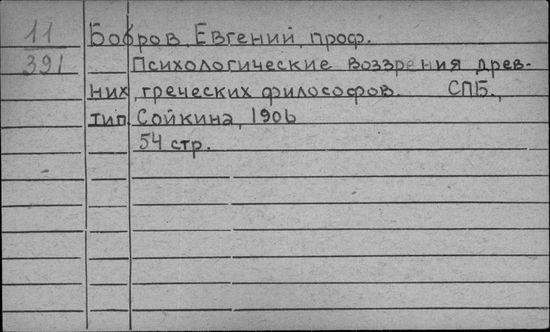 11 Бобров, Евгений, проф.
391 Психологические воззрения древ-
них греческих философов. СПБ.,
тип. Сойкина, 1906
54 стр.